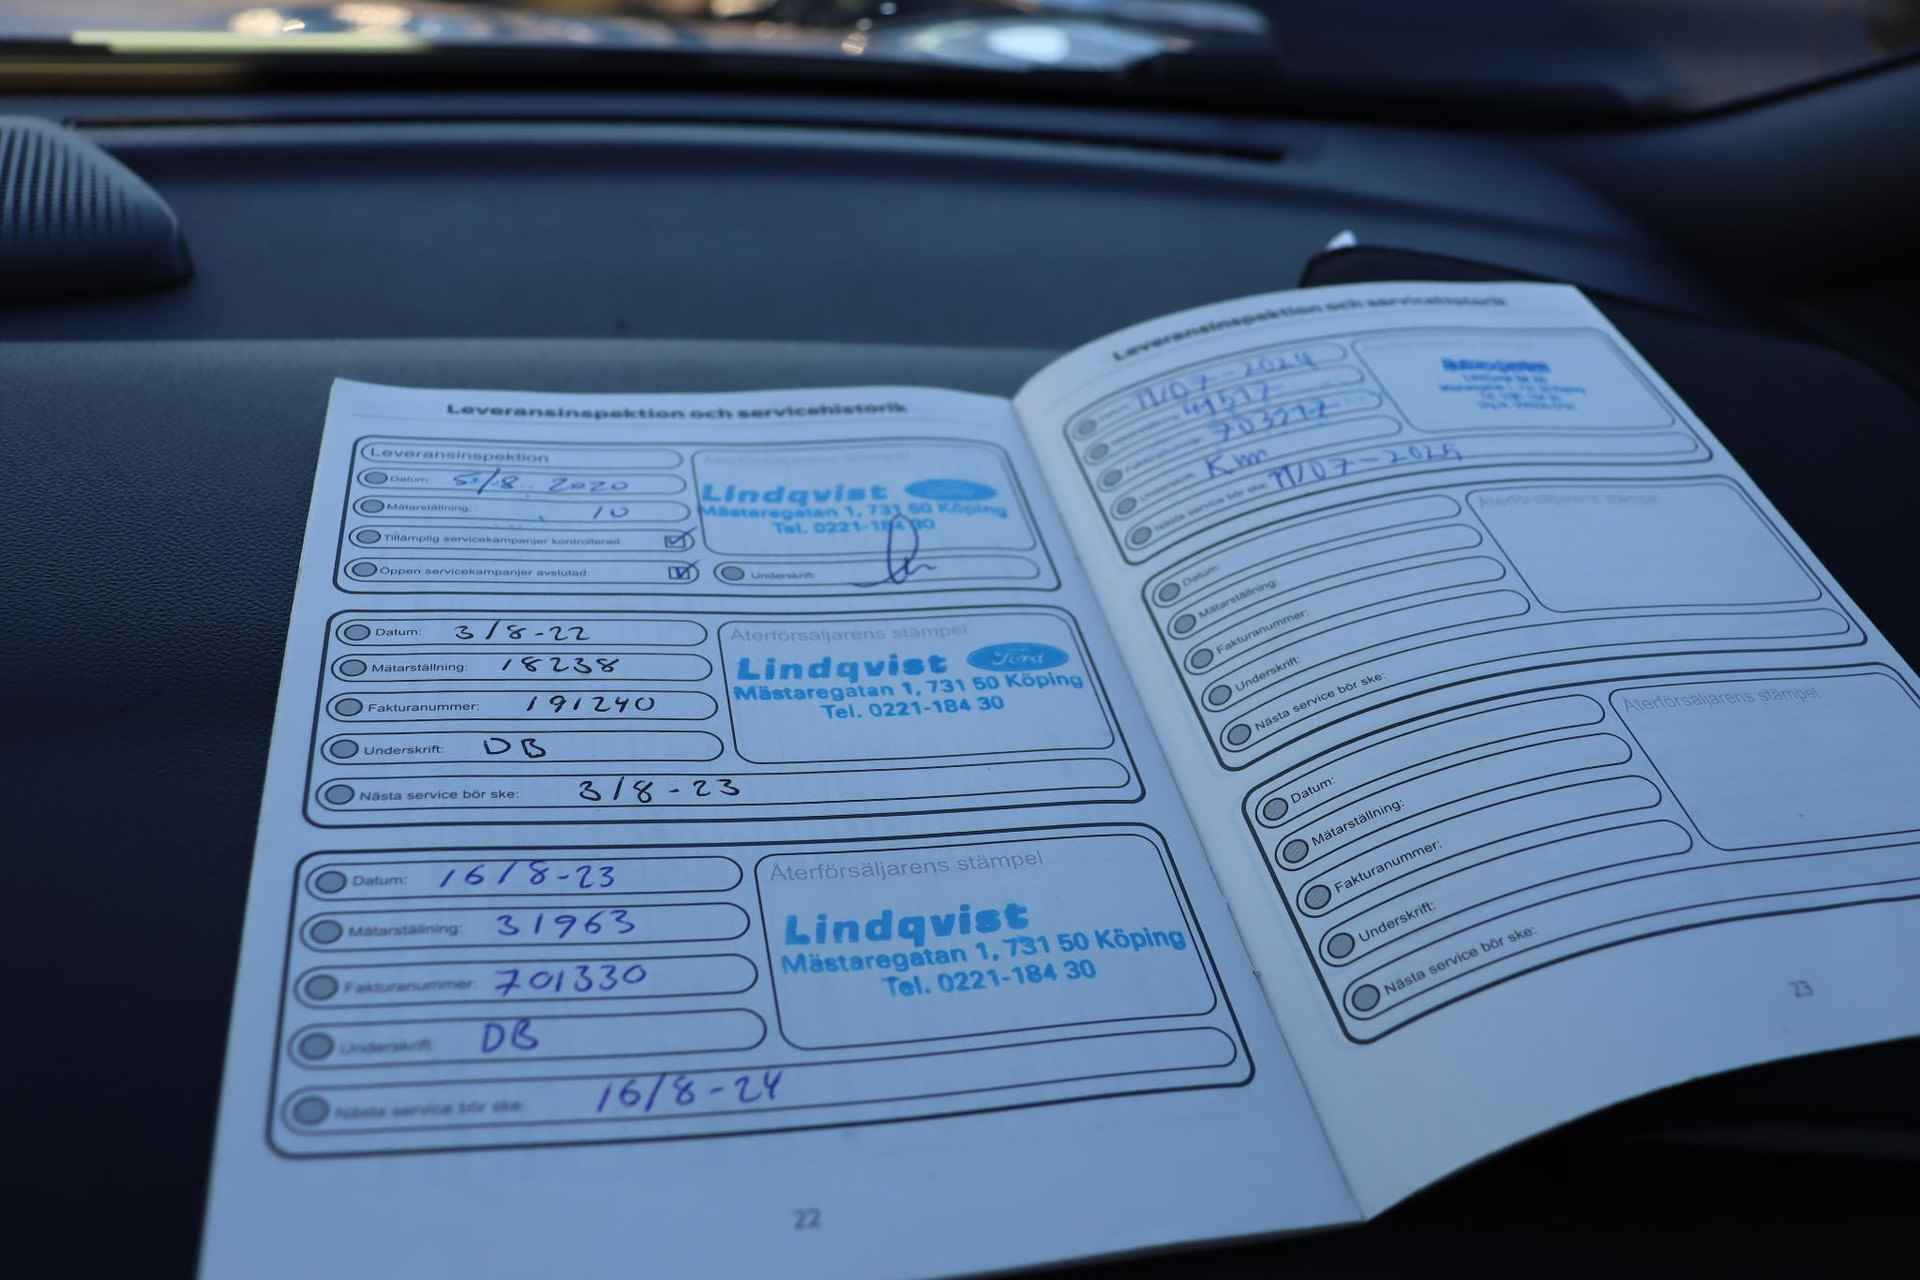 Leveransinspektion och servicehistorik
Leveransinspektion
Datum: 5/8 2020
Mätarställning: 10
Tillämplig servicekampanjer kontrollerad
Öppen servicekampanjer avslutad:
Lindqvist Ford
Mästaregatan 1, 731 50 Köping
Tel. 0221-184 30
Underskrift:
Datum: 3/8-22
Mätarställning: 18238
Fakturanummer: 191240
Underskrift: DB
Nästa service bör ske: 3/8-23
Återförsäljarens stämpel
Lindqvist Ford
Mästaregatan 1, 731 50 Köping
Tel. 0221-184 30
Datum: 16/8-23
Mätarställning: 31963
Fakturanummer: 701330
Underskrift: DB
Nästa service bör ske: 16/8-24
Återförsäljarens stämpel
Lindqvist
Mästaregatan 1, 731 50 Köping
Tel. 0221-184 30
22
Leveransinspektion och servicehistorik
11/07-2024
41517
703217
Nästa service bör ske: 11/07-2025
Datum:
Mätarställning:
Fakturanummer:
Underskrift:
Nästa service bör ske:
Återförsäljarens stämpel
Datum:
Mätarställning:
Fakturanummer:
Underskrift:
Nästa service bör ske:
Återförsäljarens stämpel
23